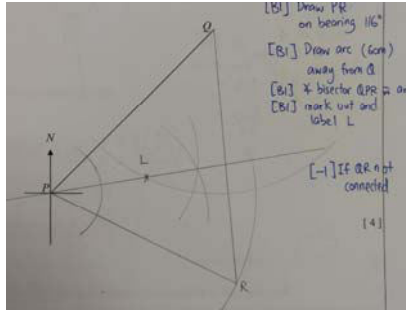 Q
[B1] Draw PR
on bearing 116°
[B1] Draw arc (6cm)
away from Q
[B1] ∡ bisector QPR
[B1] mark out and
label L
N
L
P
[-1] If QR not
connected
[4]
R